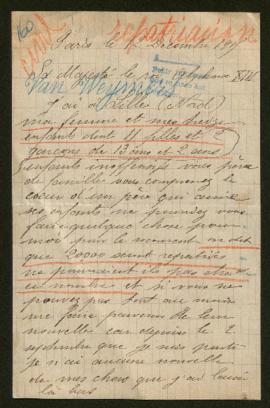 160
repatriacion
Paris le 16 Décembre 191
Sa Majesté le roi Alphonse XIII
Van Weymeis
J'ai à Lille (Nord)
ma femme et mes treize
enfants dont 11 filles et 2
garçons de 13 ans et 2 ans
enfants inoffensifs vous père
de famille vous comprenez le
coeur d'un père qui aime
ses enfants ne pourriez vous
faire quelque chose pour
moi pour le moment on dit
que 20000 seront rapatriés
ne pourraient ils pas être
nombre et si vous ne
pouvez pas tout au moins
me faire parvenir de leur
nouvelle car depuis le 2
septembre que je suis parti
je n'ai aucune nouvelle
de mes chers que j'ai laissé
là bas